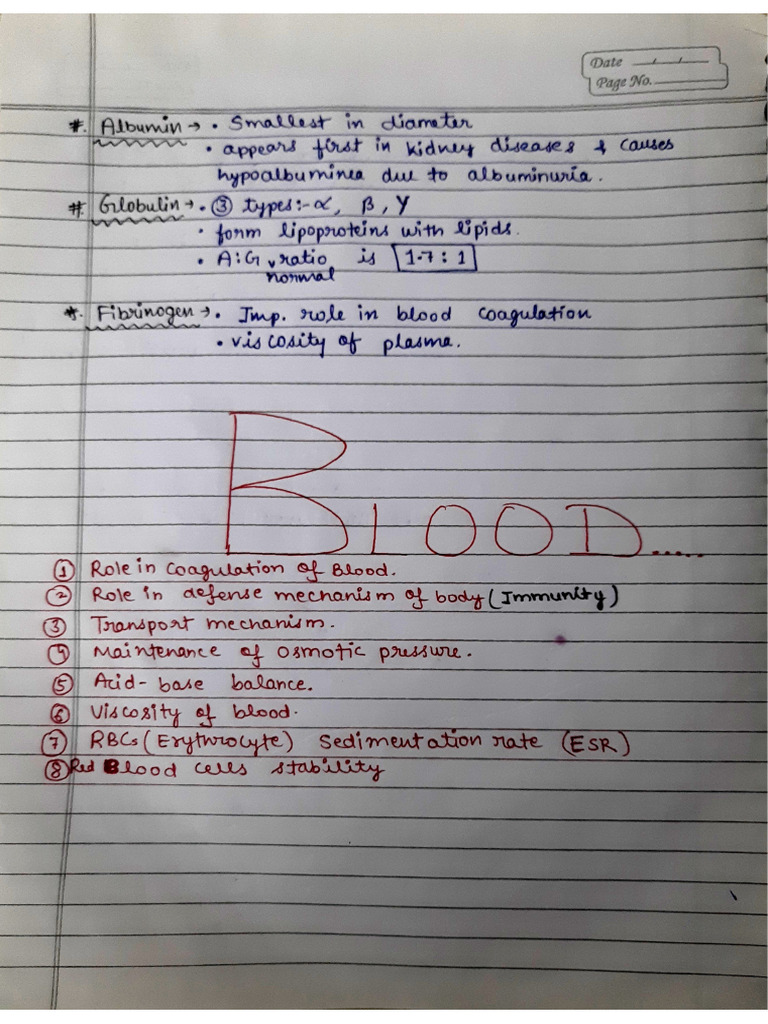 Date __/__/__
Page No.______
#. Albumin → • Smallest in diameter
• appears first in kidney diseases & causes
hypoalbuminea due to albuminuria.
#. Globulin → • ③ types:- α, β, γ
• form lipoproteins with lipids.
• A:G ˅ ratio is 1.7 : 1
normal
#. Fibrinogen → • Imp. role in blood coagulation
• viscosity of plasma.
BLOOD.....
① Role in coagulation of Blood.
② Role in defense mechanism of body (Immunity)
③ Transport mechanism.
④ Maintenance of osmotic pressure.
⑤ Acid-base balance.
⑥ Viscosity of blood.
⑦ RBCs (Erythrocyte) Sedimentation rate (ESR)
⑧ Red Blood cells stability